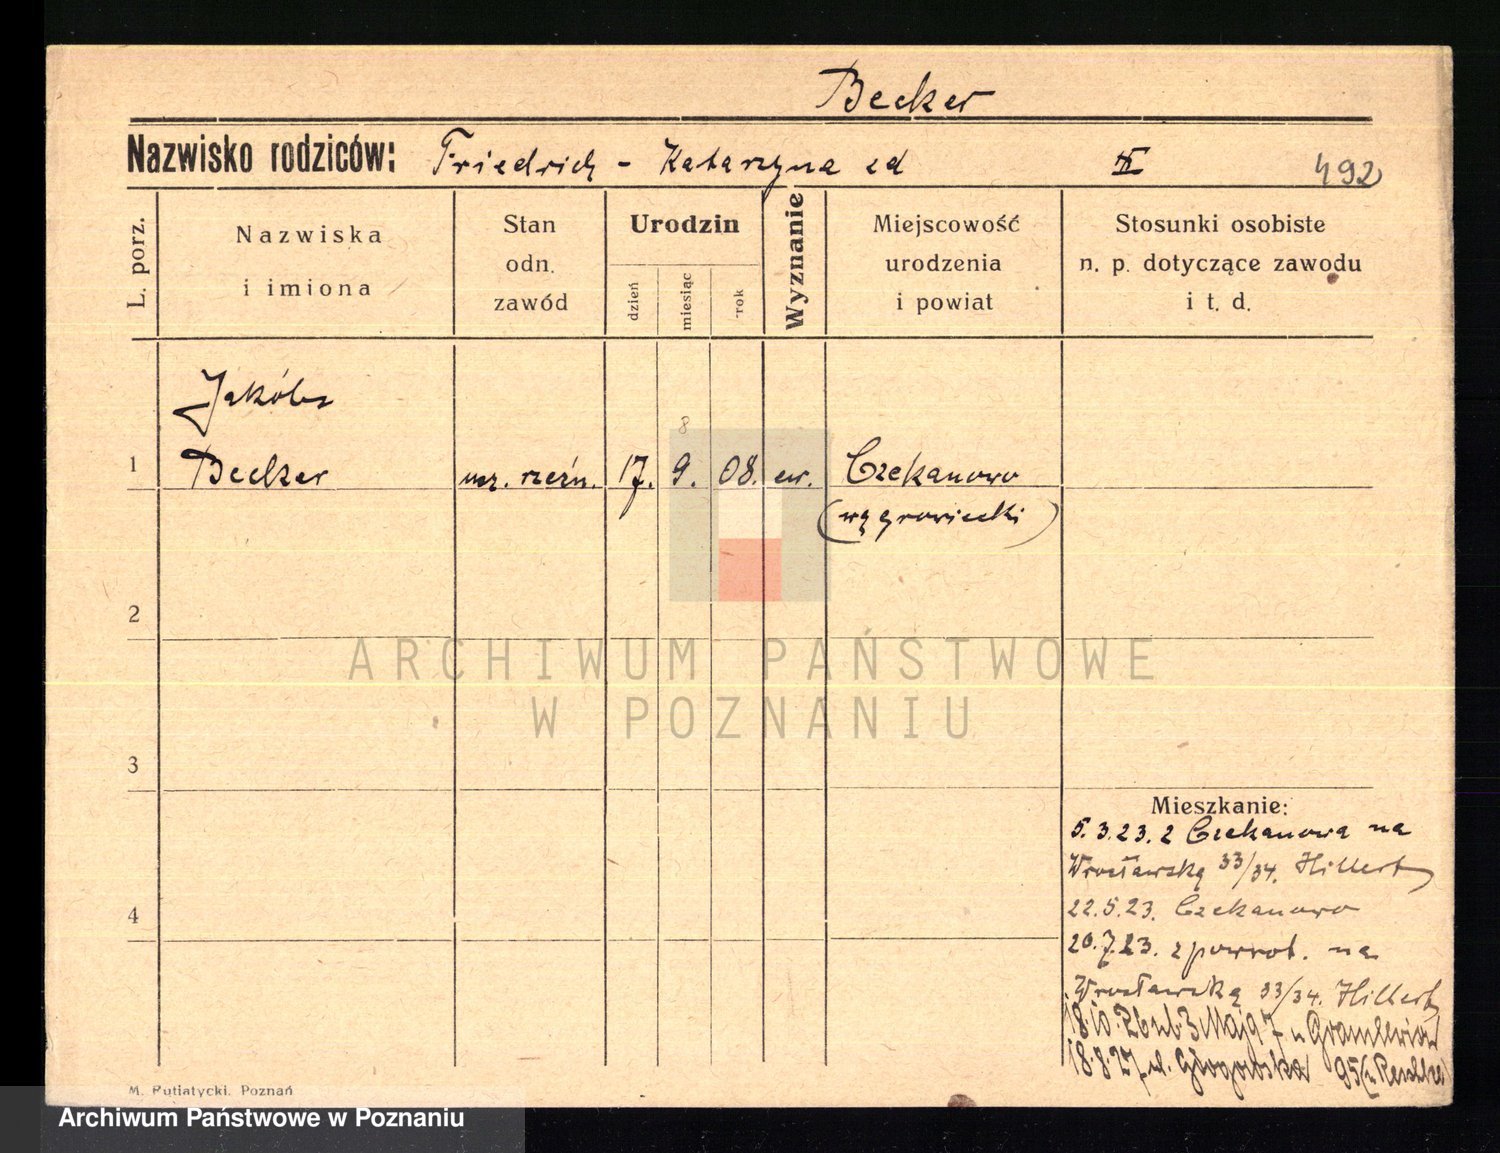 Becker
Nazwisko rodziców: Friedrich - Katarzyna zd IX 492
L. porz.
Nazwiska
i imiona
Stan
odn.
zawód
Urodzin
dzień
miesiąc
rok
Wyznanie
Miejscowość
urodzenia
i powiat
Stosunki osobiste
n. p. dotyczące zawodu
i t. d.
Jakób
8
1 Becker ucz. rzeźn. 17. 9. 08. ew. Czekanowo
(wągrowiecki)
2
ARCHIWUM PAŃSTWOWE
W POZNANIU
3
Mieszkanie:
5.3.23. z Czekanowa na
Wrocławską 33/34. Hilbert
4
22.5.23. Czekanowo
20.7.23. z powrot. na
Wrocławską 33/34. Hilbert
18.10.26 ul. 3 Maja 7 u
18.8.27 ul. Głogowska 95
M. Putiatycki. Poznań
Archiwum Państwowe w Poznaniu